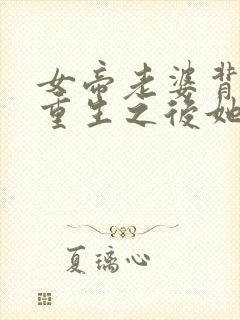 女帝老婆背
重生之后她
夏璃心